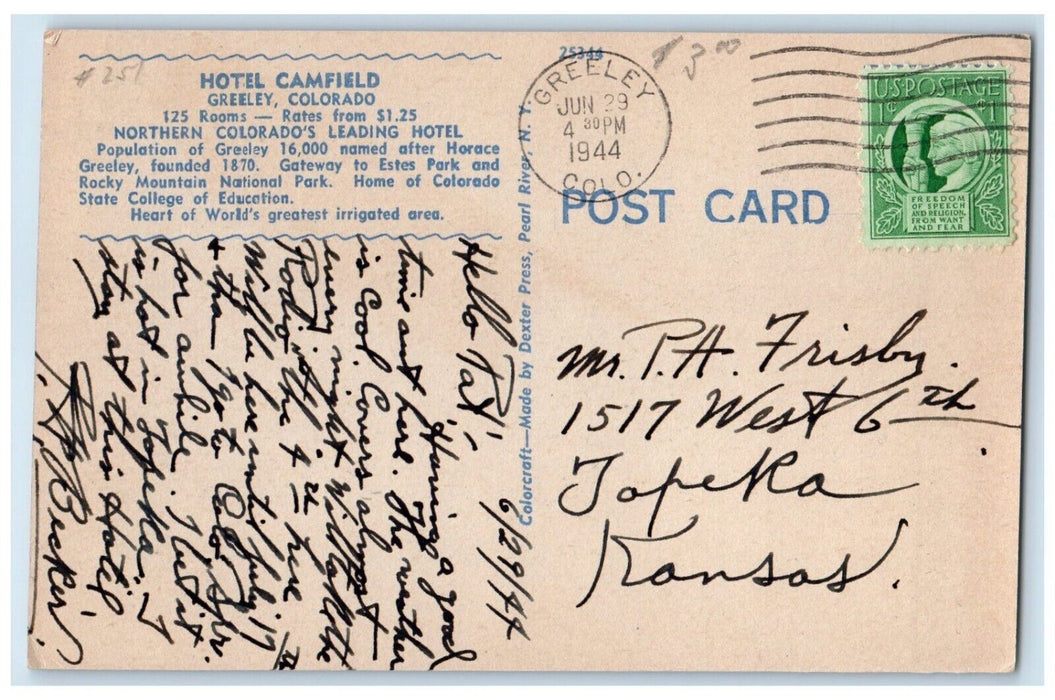 # 251
HOTEL CAMFIELD
GREELEY, COLORADO
125 Rooms — Rates from $1.25
NORTHERN COLORADO'S LEADING HOTEL
Population of Greeley 16,000 named after Horace
Greeley, founded 1870. Gateway to Estes Park and
Rocky Mountain National Park. Home of Colorado
State College of Education.
Heart of World's greatest irrigated area.
6/29/44
Hello Pat,
Having a good
time out here. The weather
is cool. Covers almost
every night. Will take the
Rodio the 4th here
Will be here until July 17th
+ then go to Colo Spr.
for awhile. I bet it
is hot in Topeka.
stay at this Hotel
Becker
Colorcraft—Made by Dexter Press, Pearl River, N. Y.
25344
$ 3.00
GREELEY
JUN 29
4 30 PM
1944
COLO.
U.S. POSTAGE
1¢ ¢1
FREEDOM
OF SPEECH
AND RELIGION,
FROM WANT
AND FEAR
POST CARD
Mr. P. H. Frisby.
1517 West 6th
Topeka
Kansas.